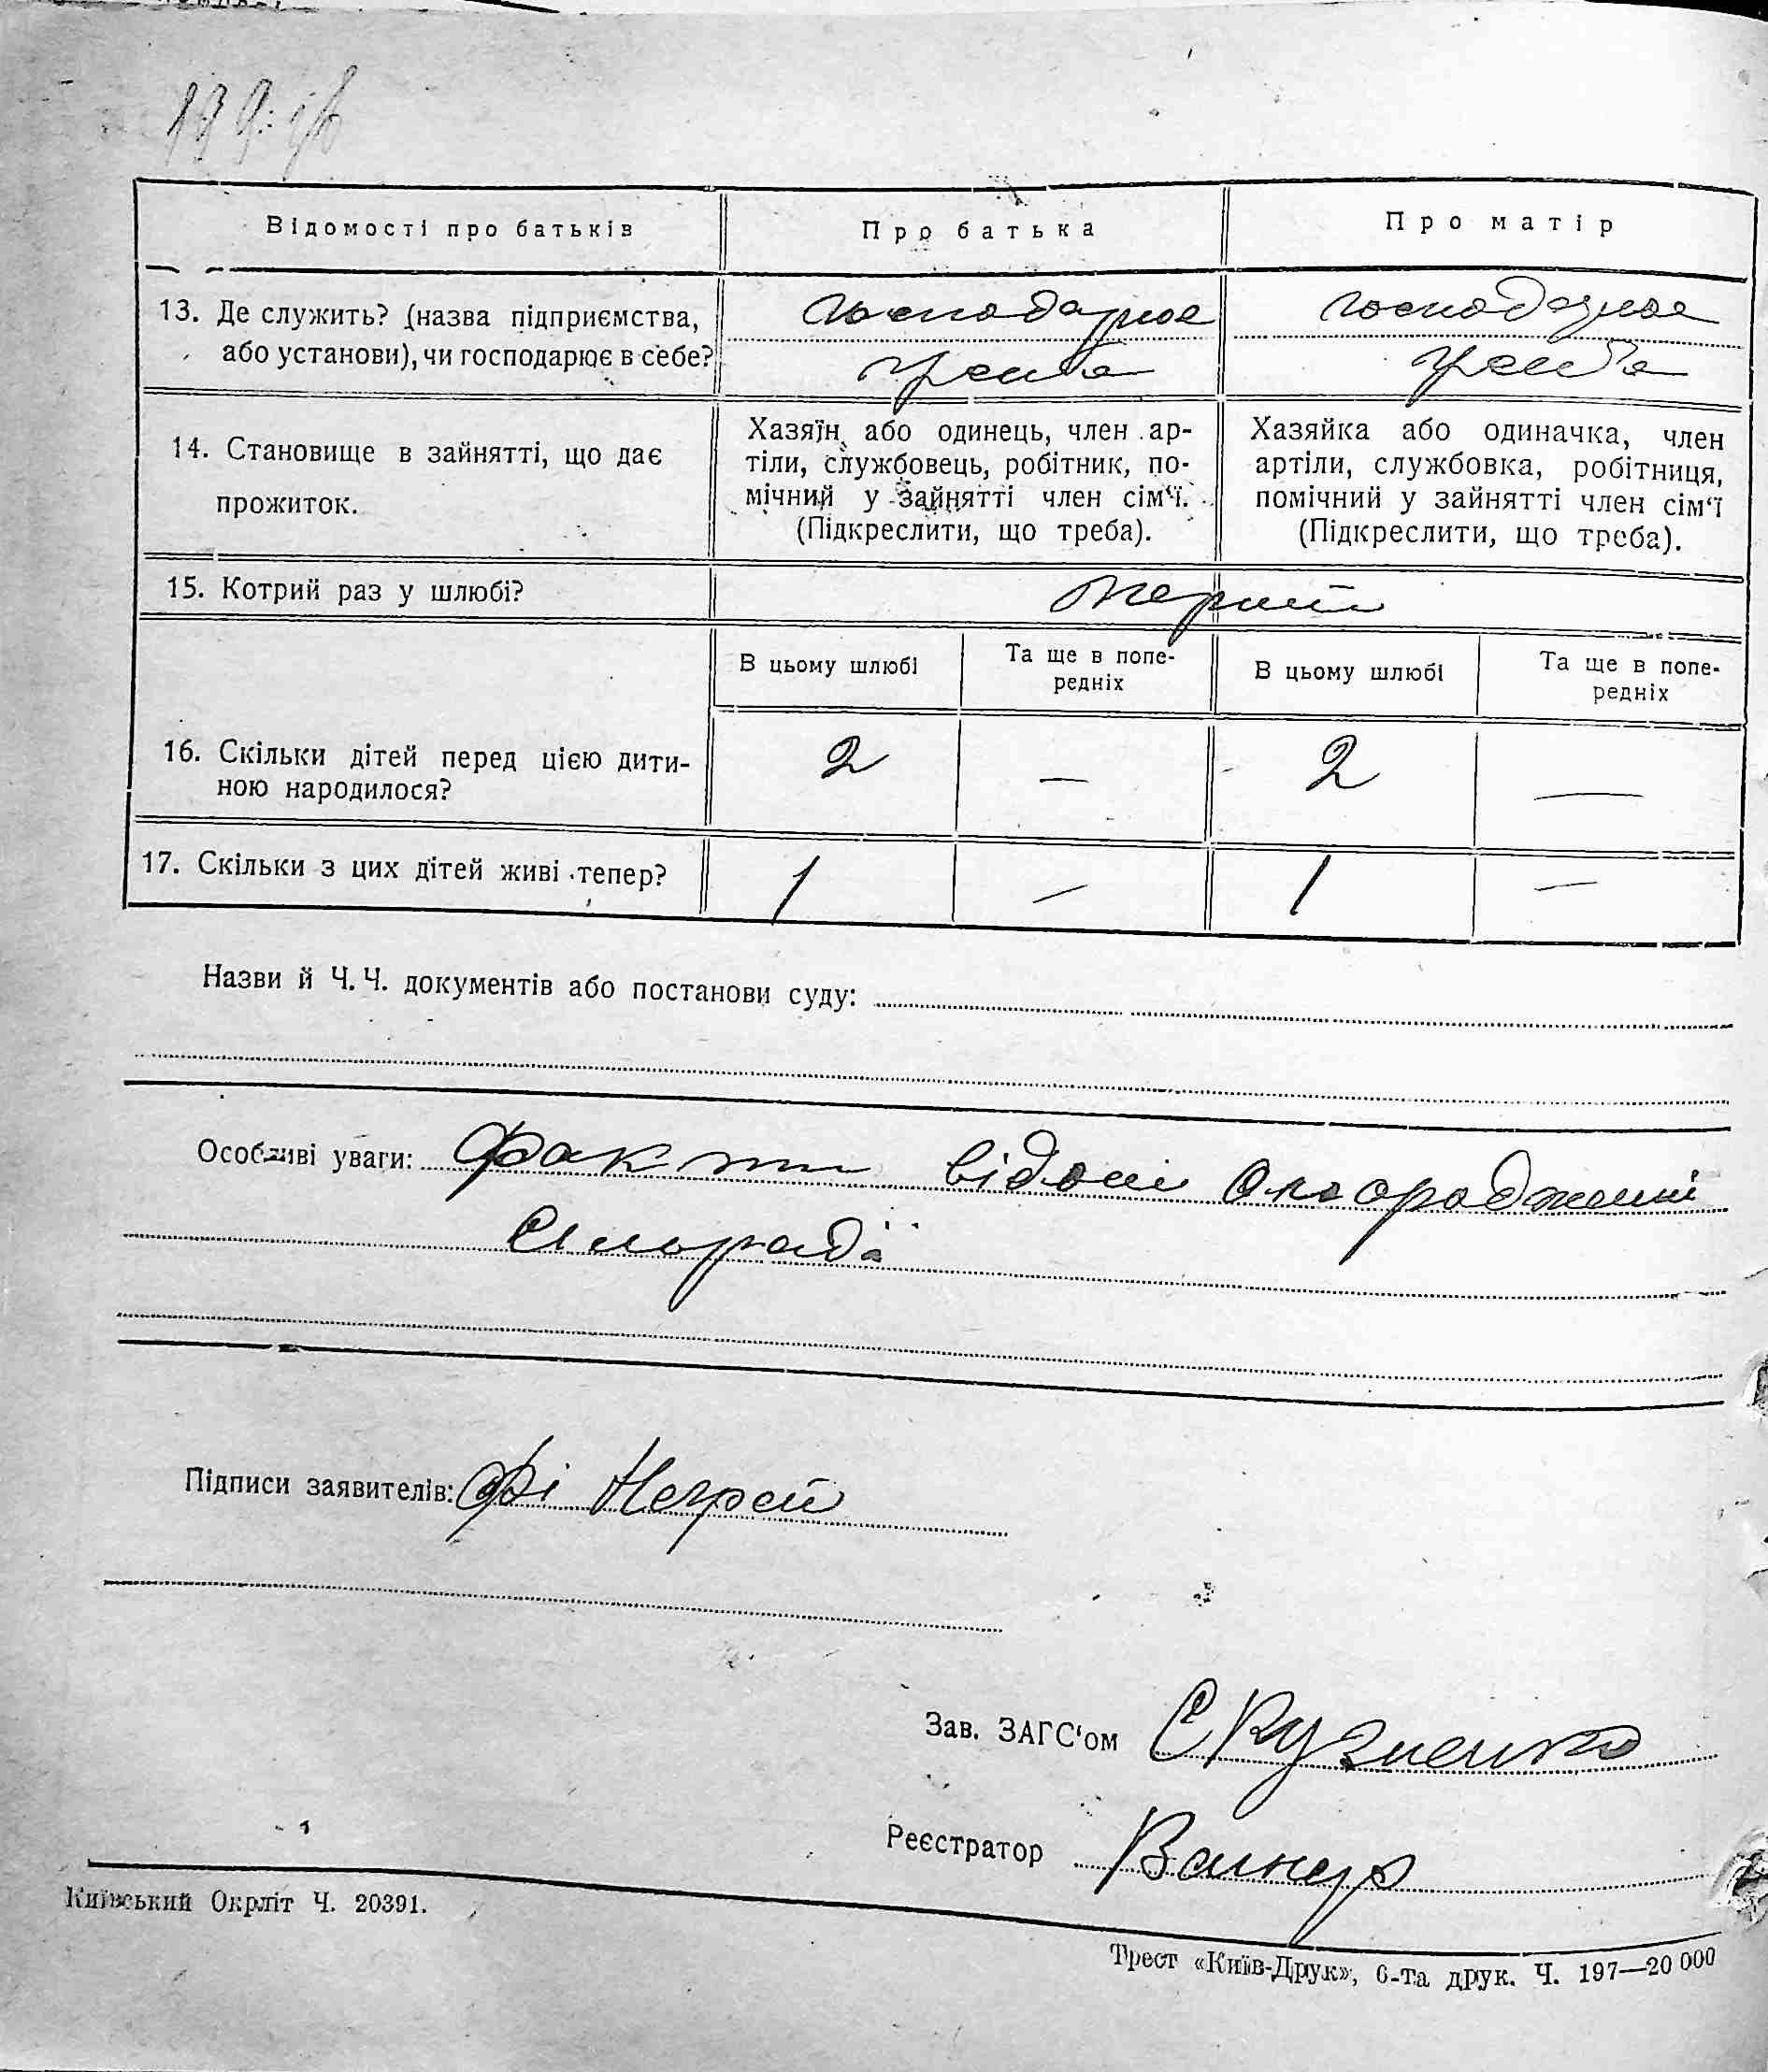 Відомості про батьків
Про батька
Про матір
13. Де служить? (назва підприємства,
або установи), чи господарює в себе?
господарює
господарює
14. Становище в зайнятті, що дає
прожиток.
Хазяїн або одинець, член ар-
тіли, службовець, робітник, по-
мічний у зайнятті член сім'ї.
(Підкреслити, що треба).
Хазяйка або одиначка, член
артіли, службовка, робітниця,
помічний у зайнятті член сім'ї
(Підкреслити, що треба).
15. Котрий раз у шлюбі?
перший
В цьому шлюбі
Та ще в попе-
редніх
В цьому шлюбі
Та ще в попе-
редніх
16. Скільки дітей перед цією дити-
ною народилося?
2 — 2 —
17. Скільки з цих дітей живі тепер?
1 — 1 —
Назви й Ч. Ч. документів або постанови суду:
Особливі уваги: Факти відомі
Сільраді
Підписи заявителів:
Зав. ЗАГС'ом С Кузненко
Реєстратор
Київський Окрліт Ч. 20391.
Трест «Київ-Друк», 6-та друк. Ч. 197—20 000